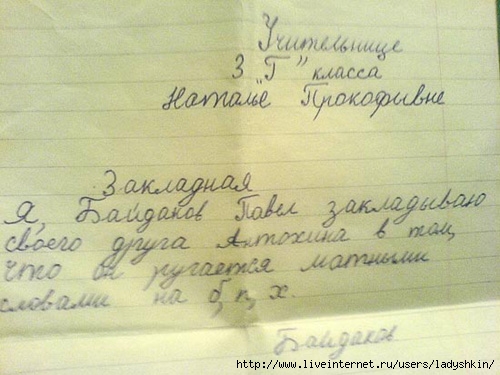 Учительнице
3 "Г" класса
Наталье Прокофивне
Закладная
Я, Байдаков Павел закладываю
своего друга Антохина в том,
что он ругается матными
словами на б, п, х.
Байдаков
http://www.liveinternet.ru/users/ladyshkin/